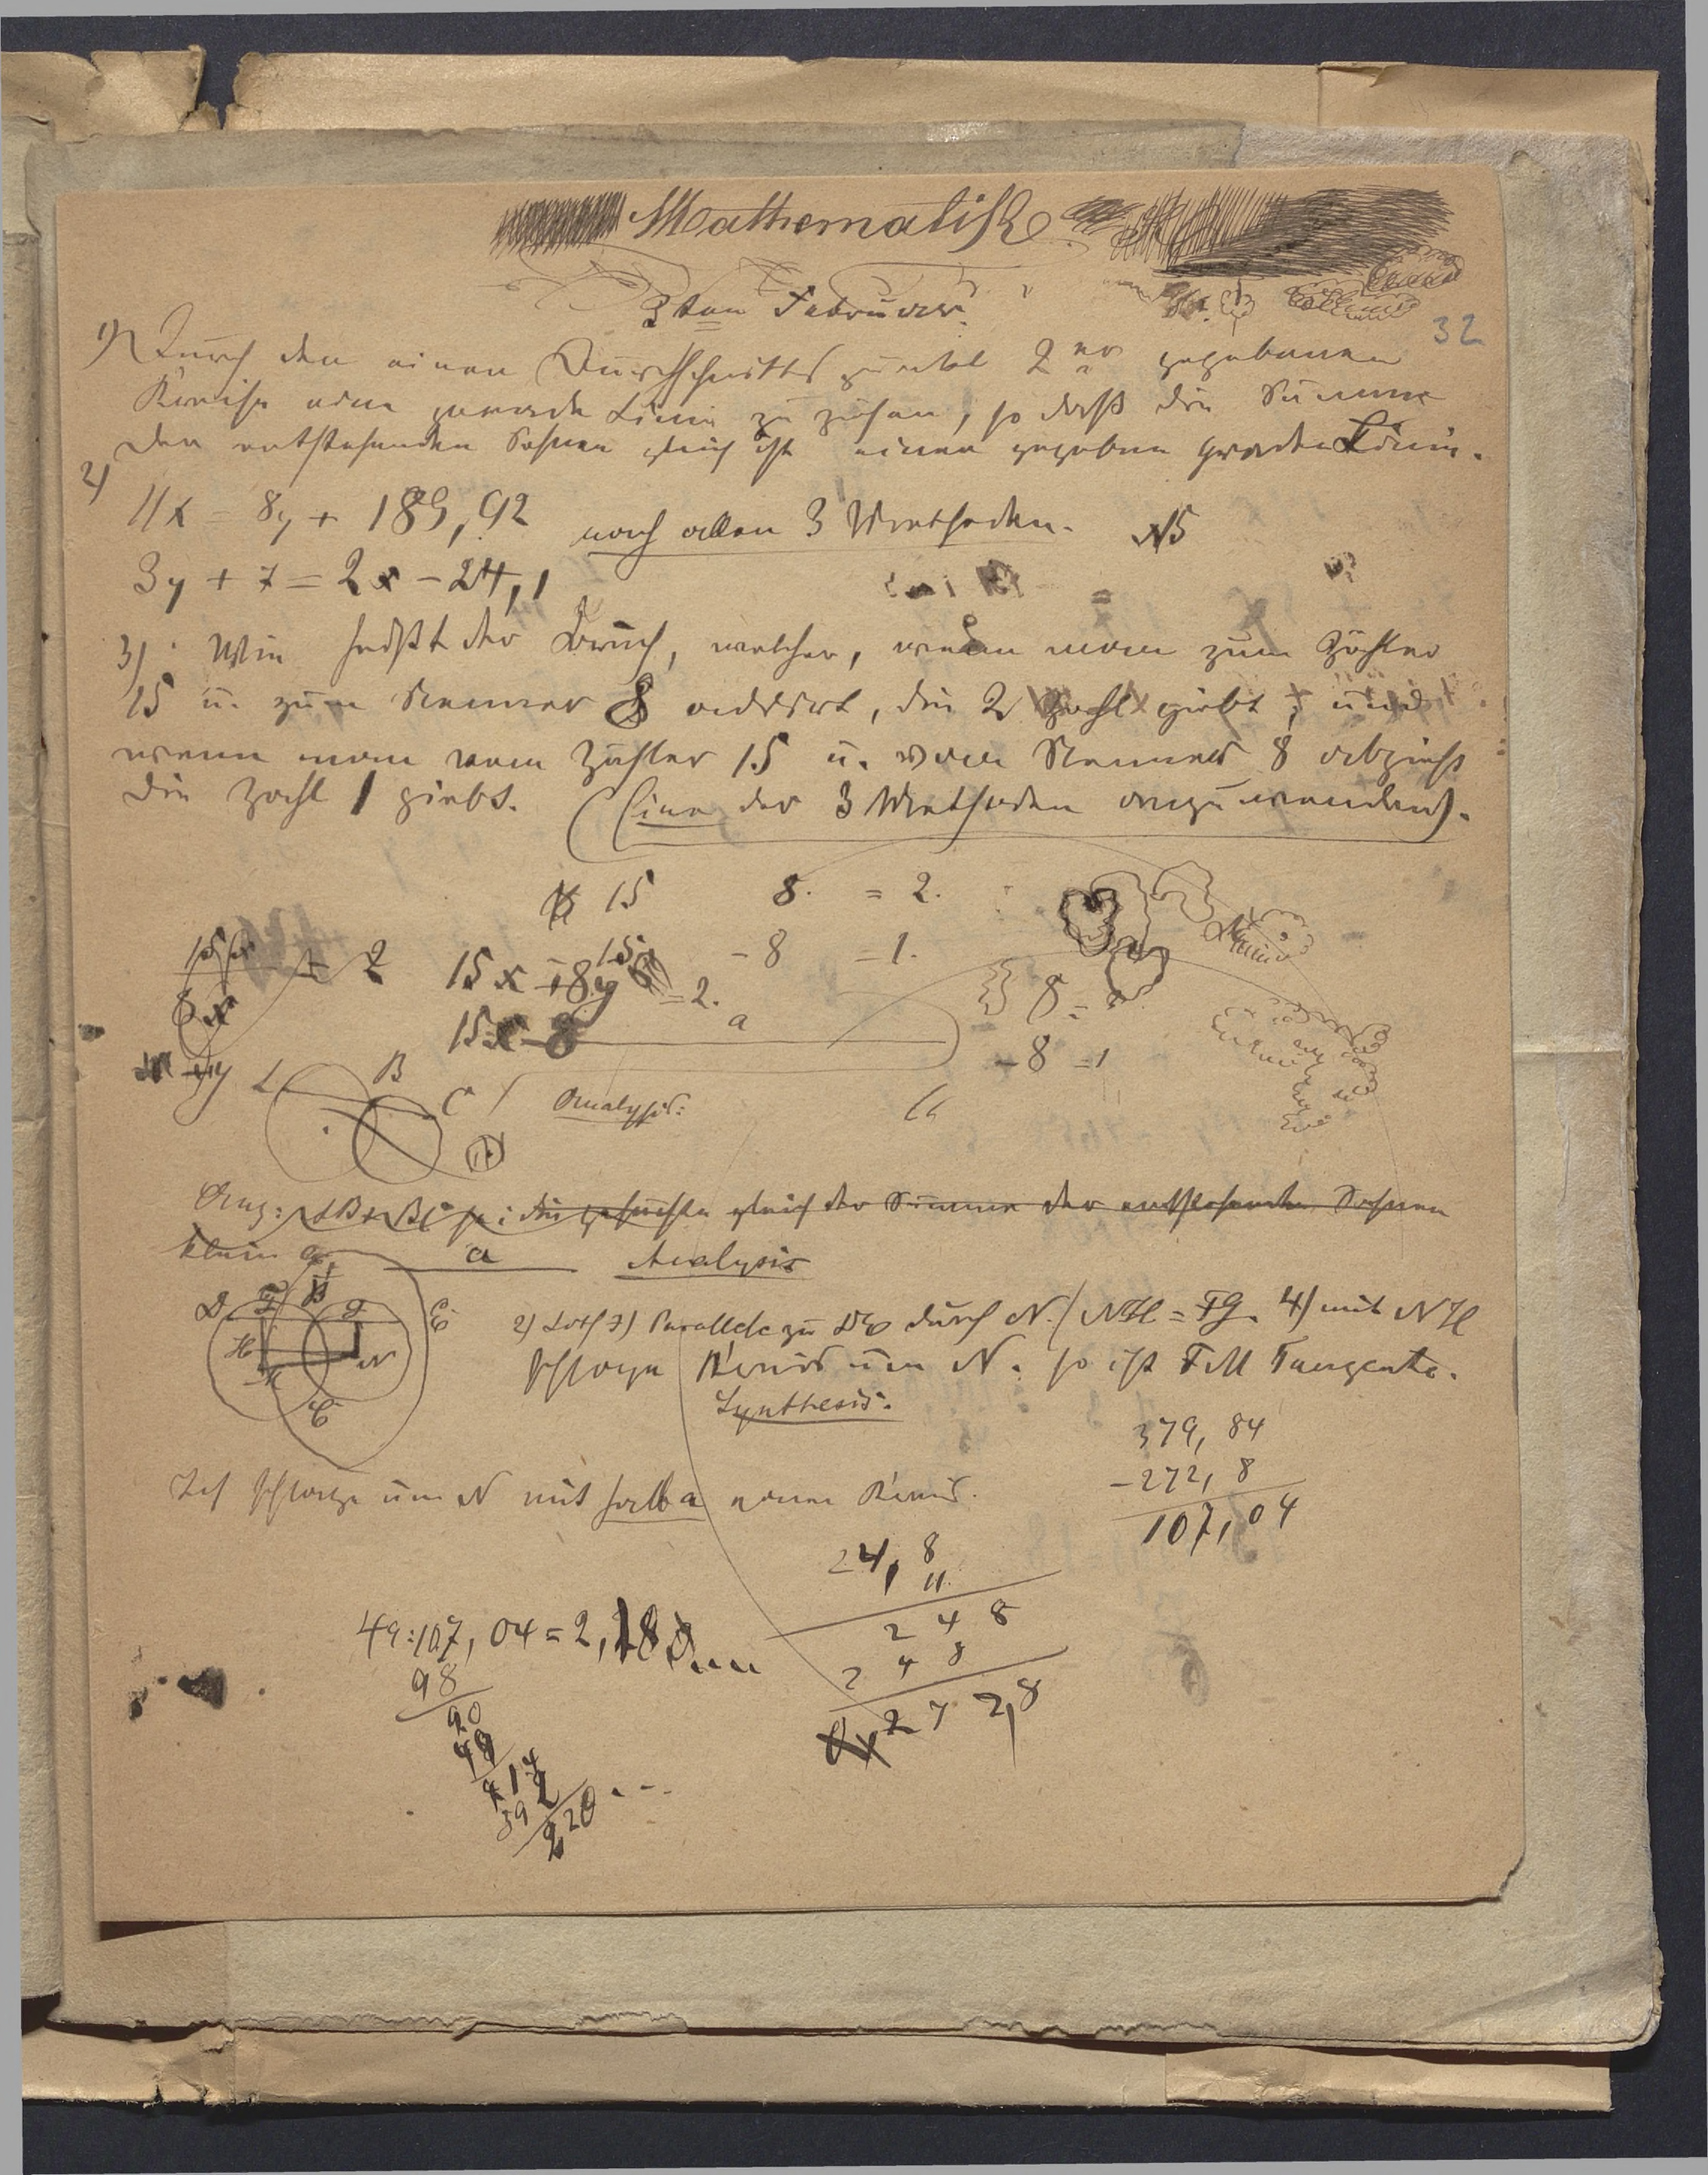 Mathematik
3ten Februar.
32
1) Durch den einen Durchschnittspunkt 2er gegebenen
Kreise eine gerade Linie zu ziehen, so daß die Summe
der entstehenden Sehnen gleich ist einer gegeben geraden Linie.
2)
11x = 8y + 189,92 nach allen 3 Methoden. N5
3y + 7 = 2x - 24,1
3) Wie heißt der Bruch, welcher, wenn man zum Zähler
15 u. zum Nenner 8 addirt, die 2 Zahl giebt; und
wenn man vom Zähler 15 u. vom Nenner 8 abzieht
die Zahl 1 giebt. (Eine der 3 Methoden anzuwenden).
15 8. = 2.
- 8 = 1.
15x + 8y = 2.
15x - 8
a
8 =
- 8 = 1
B
C
Analysis:
Ang: AB + BC sei die gesuchte gleich der Summe der entstehenden Sehnen
klein a. a Analysis
D F B G E
H N
M
C
2) Loth 3) Parallele zu DE durch N. / NH = FG. 4) mit NH
schlage Kreis um N. so ist FM Tangente.
Synthesis.
379,84
-272,8
107,04
Ich schlage um N mit halb a einen Kreis.
24,8
11
248
248
272,8
49:107,04 = 2,18
98
90
49
414
392
220...